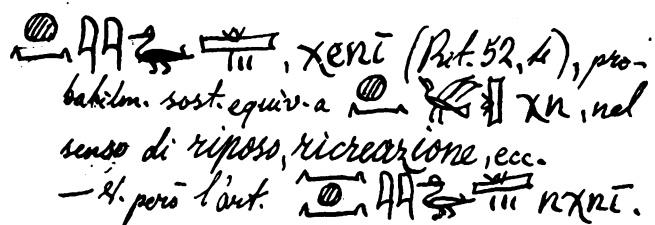 , χenī (Rit. 52, 4), pro-
babilm. sost. equiv. a χn, nel
senso di riposo, ricreazione, ecc.
— V. però l'art. nχnī.